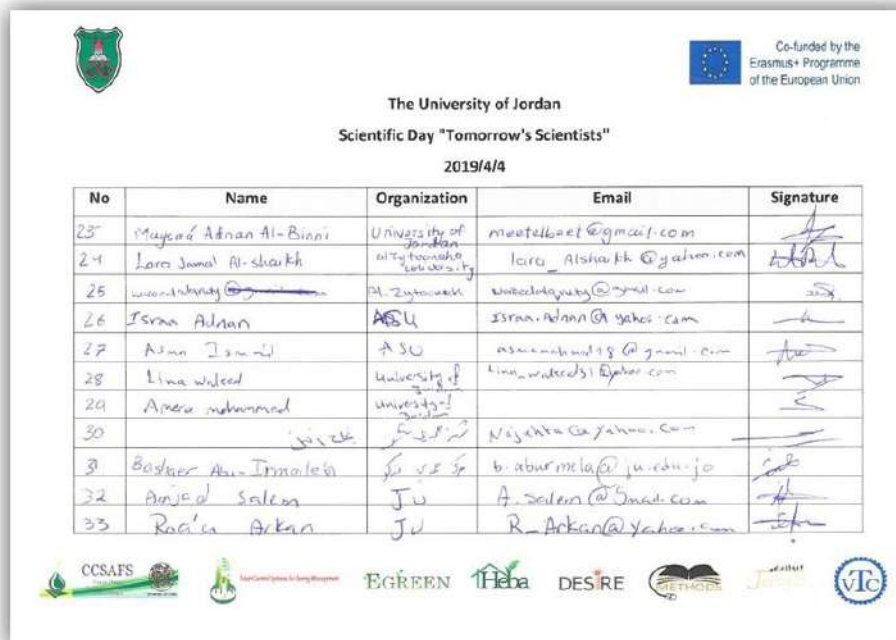 Co-funded by the
Erasmus+ Programme
of the European Union
The University of Jordan
Scientific Day "Tomorrow's Scientists"
2019/4/4
No Name Organization Email Signature
23 Adnan Al-Binni University of Jordan meetelbeet@gmail.com
24 Lara Jamal Al-shaikh alzytoonah University lara_Alshaikh@yahoo.com
25 Al-Zytoonah
26 Israa Adnan ASU Israa.Adnan@yahoo.com
27 Asma Ismail ASU
28 Lina waleed University of Jordan
29 Amera mohammed University of Jordan
30 Najehta@yahoo.com
31 Bashaer b.aburmela@ju.edu.jo
32 Amjad Salem JU A.salem@gmail.com
33 Roa'a Arkan JU R_Arkan@yahoo.com
CCSAFS
EGREEN
Heba
DESIRE
METHODS
VTC